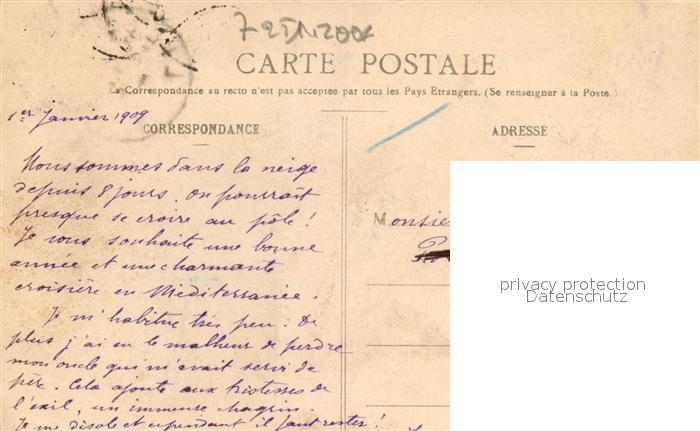 CARTE POSTALE
La Correspondance au recto n'est pas acceptée par tous les Pays Étrangers. (Se renseigner à la Poste.)
1er Janvier 1909
CORRESPONDANCE
Nous sommes dans la neige
depuis 8 jours. on pourrait
presque se croire au pôle !
Je vous souhaite une bonne
année et une charmante
croisière en Méditerranée.
Je m'habitue très peu. De
plus j'ai eu le malheur de perdre
mon oncle qui m'avait servi de
père. Cela ajoute aux tristesses de
l'exil, un immense chagrin.
Je me désole et cependant il faut rester !
ADRESSE
Monsie
privacy protection
Datenschutz